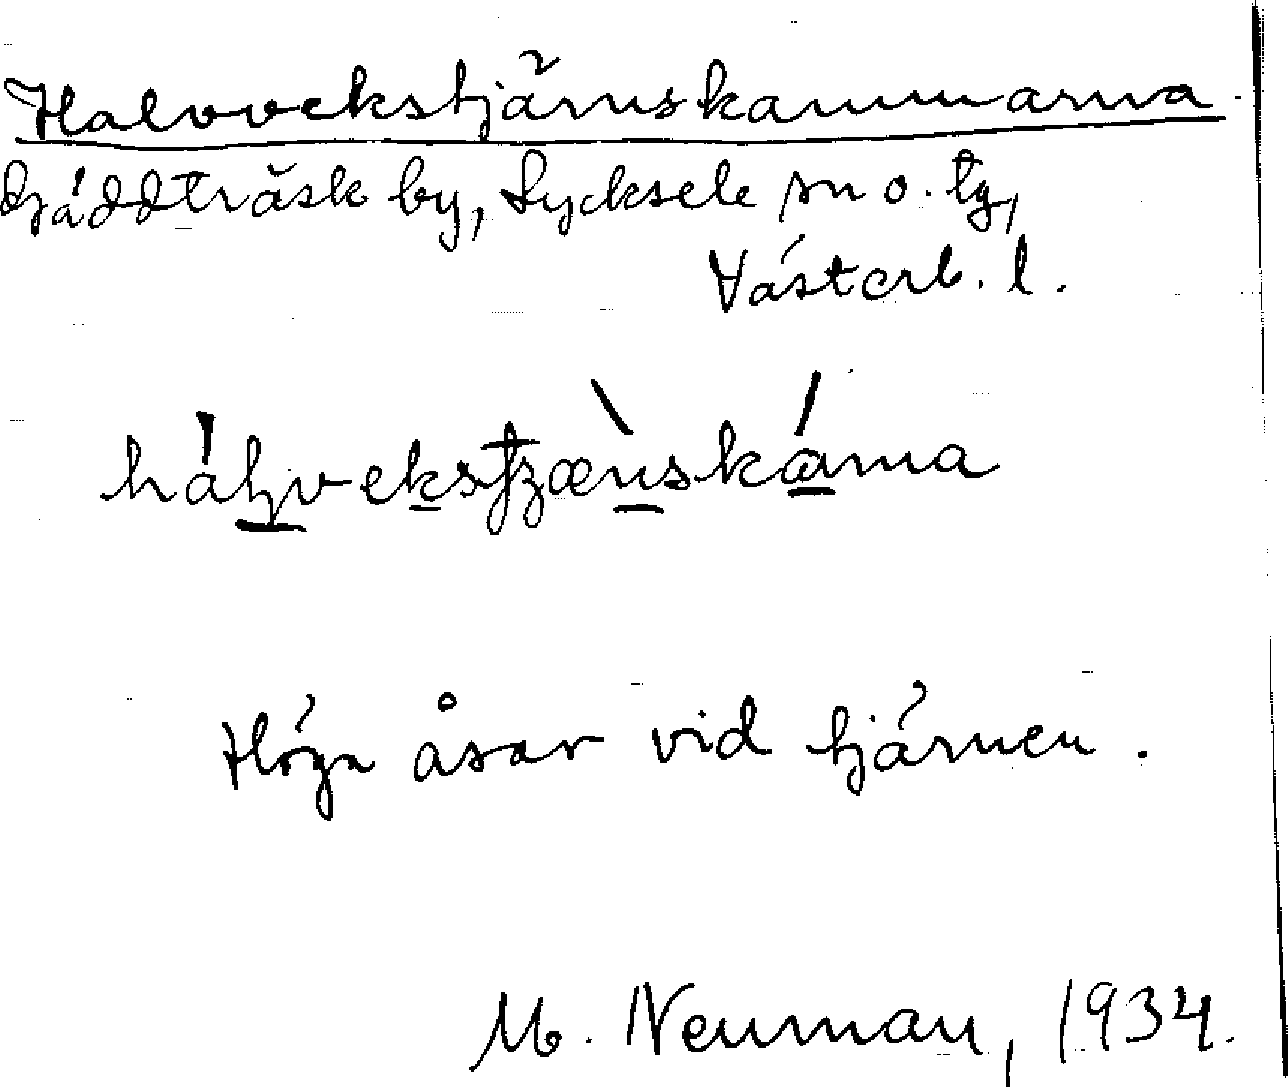 Halvvekstjärnskammarna.
Gäddträsk by, Lycksele sn o. tg,
Västerb. l.
Höga åsar vid tjärnen.
M. Neuman, 1934.